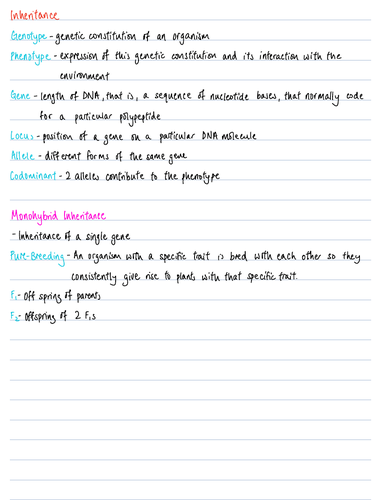 Inheritance
Genotype - genetic constitution of an organism
Phenotype - expression of this genetic constitution and its interaction with the
environment
Gene - length of DNA, that is, a sequence of nucleotide bases, that normally code
for a particular polypeptide
Locus - position of a gene on a particular DNA molecule
Allele - different forms of the same gene
Codominant - 2 alleles contribute to the phenotype
Monohybrid Inheritance
- Inheritance of a single gene
Pure-Breeding - An organism with a specific trait is bred with each other so they
consistently give rise to plants with that specific trait.
F₁ - Off spring of parents
F₂ - Offspring of 2 F₁s